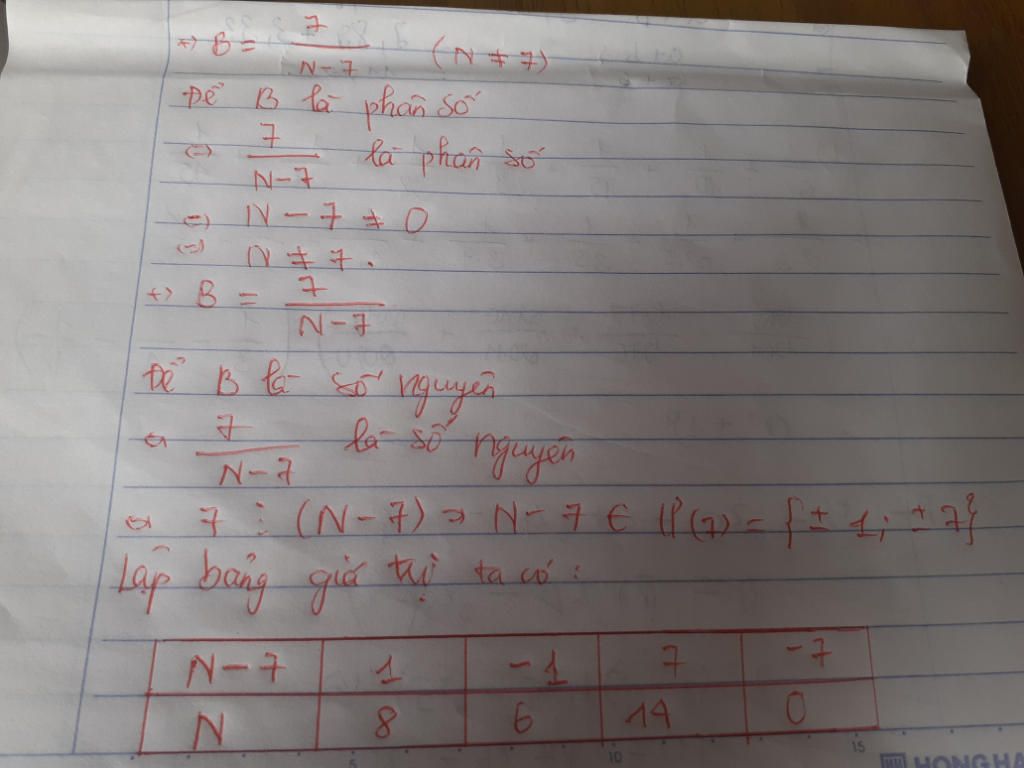 +) B = 7/(N-7) (N ≠ 7)
Để B là phân số
<=> 7/(N-7) là phân số
<=> N - 7 ≠ 0
<=> N ≠ 7.
+) B = 7/(N-7)
Để B là số nguyên
<=> 7/(N-7) là số nguyên
<=> 7 ⋮ (N-7) => N-7 ∈ Ư(7) = {± 1; ± 7}
Lập bảng giá trị ta có:
N-7 1 -1 7 -7
N 8 6 14 0
5 10 15
HONG HA